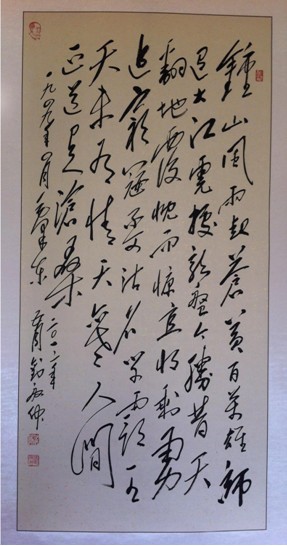 鍾山風雨起蒼黃百萬雄師
過大江虎據龍盤今勝昔天
翻地覆慨而慷宜將剩勇
追窮寇不可沽名學霸王
天若有情天亦老人間
正道是滄桑
一九四九年四月毛澤東
二〇一二年